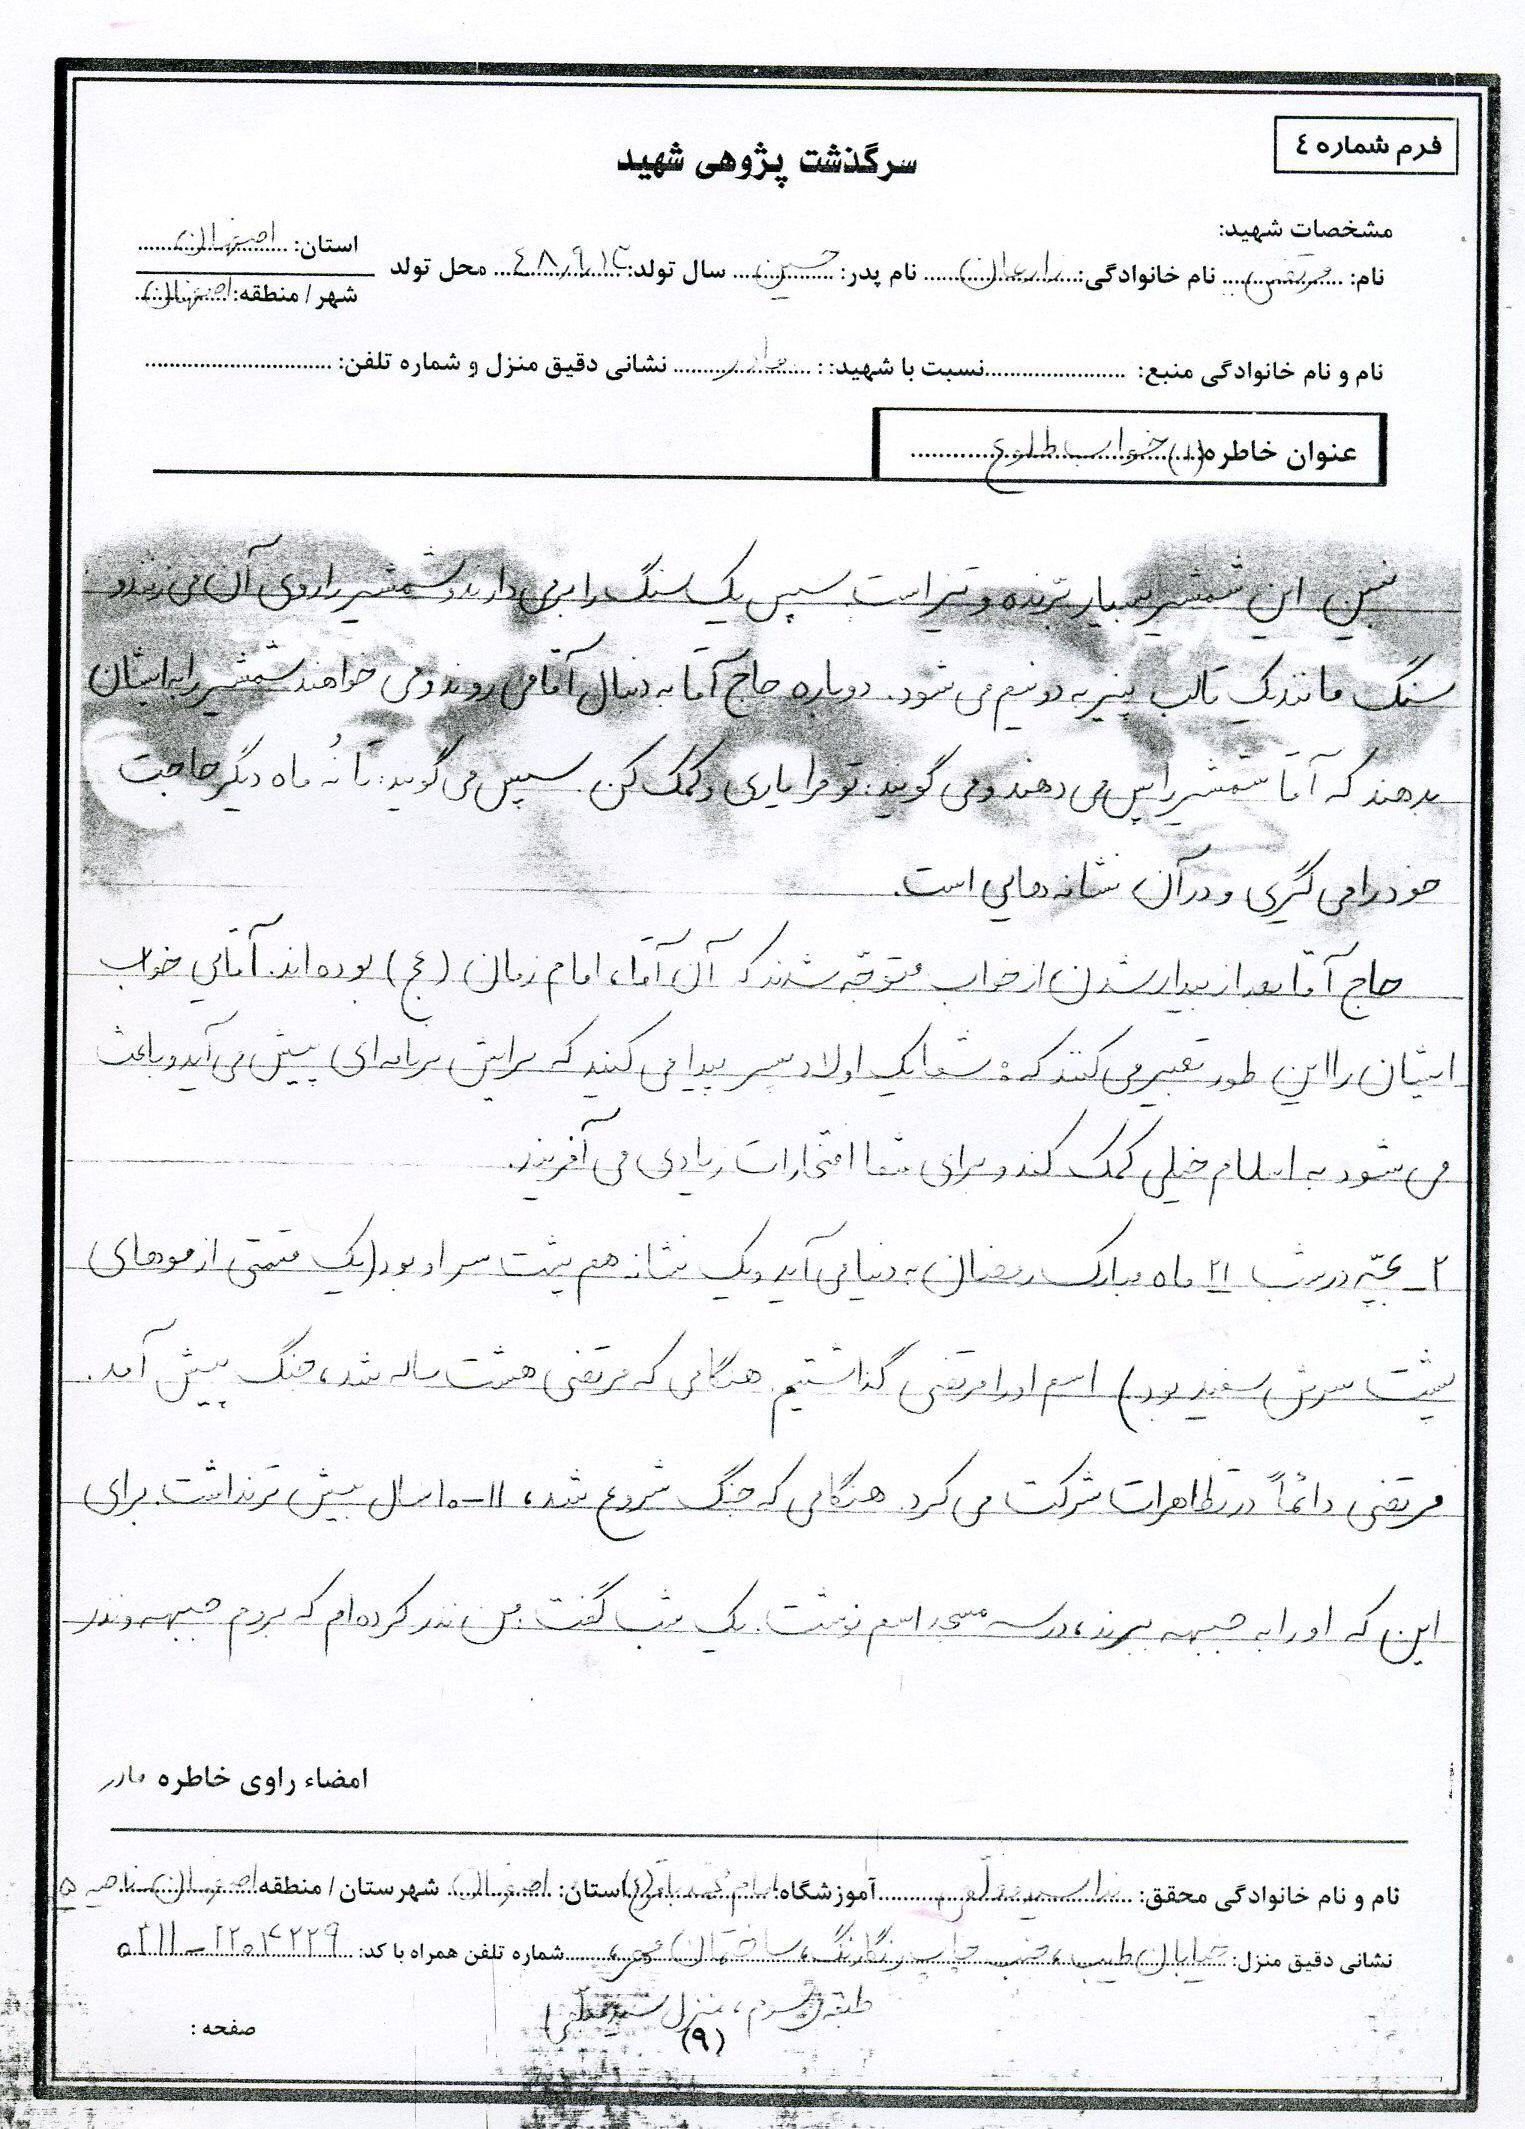 فرم شماره ٤
سرگذشت پژوهی شهید
مشخصات شهید:
نام: مرتضی نام خانوادگی: زارعان نام پدر: حسین سال تولد: ٤٨,٩,١٤ محل تولد
استان: اصفهان
شهر / منطقه: اصفهان
نام و نام خانوادگی منبع: نسبت با شهید: : مادر نشانی دقیق منزل و شماره تلفن:
عنوان خاطره (١) خواب طلوع
ببین این شمشیر بسیار برّنده و تیز است. سپس یک سنگ را برمی دارند و شمشیر را روی آن می زنند و
سنگ مانند یک قالب پنیر به دو نیم می شود. دوباره حاج آقا به دنبال آقا می روند و می خواهند شمشیر را به ایشان
بدهند که آقا شمشیر را پس می دهند و می گویند: تو مرا یاری و کمک کن. سپس می گویند: تا نُه ماه دیگر حاجت
خود را می گیری و در آن نشانه هایی است.
حاج آقا بعد از بیدار شدن از خواب متوجّه شدند که آن آقا، امام زمان (عج) بوده اند. آقایی خواب
ایشان را این طور تعبیر می کنند که: شما یک اولاد پسر پیدا می کنید که برایش برنامه ای پیش می آید و باعث
می شود به اسلام خیلی کمک کند و برای شما افتخارات زیادی می آفریند.
٢_ بچّه در شب ٢١ ماه مبارک رمضان به دنیا می آید و یک نشانه هم پشت سر او بود (یک قسمتی از موهای
پشت سرش سفید بود) اسم او را مرتضی گذاشتیم. هنگامی که مرتضی هشت ساله شد، جنگ پیش آمد.
مرتضی دائماً در تظاهرات شرکت می کرد. هنگامی که جنگ شروع شد، ١١-١٠ سال بیش تر نداشت. برای
این که او را به جبهه ببرند، در مسجد اسم نوشت. یک شب گفت: من نذر کرده ام که بروم جبهه و نذر
امضاء راوی خاطره مادر
نام و نام خانوادگی محقق: آموزشگاه: امام محمد باقر (ع) استان: اصفهان شهرستان / منطقه اصفهان ناحیه ٥
نشانی دقیق منزل: خیابان طیب، جنب چاپ رنگارنگ، ساختمان شماره تلفن همراه با کد: ٠٣١١-٢٢٠٤٢٢٩
طبقه سوم، منزل
صفحه : (٩)